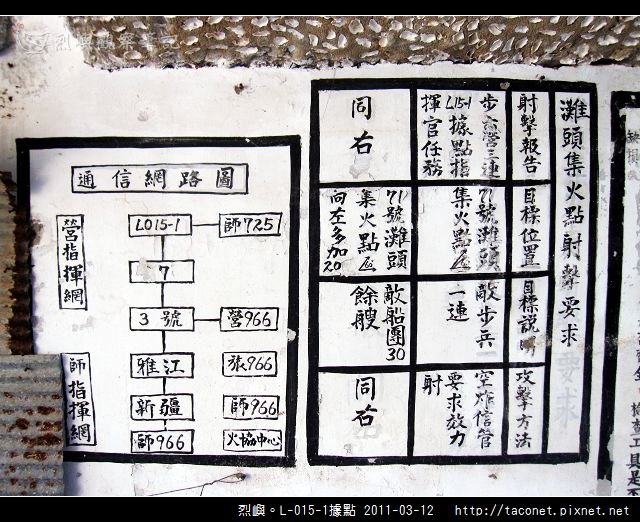 灘頭集火點射擊要求
射擊報告
步二營三連
L15-1據點指
揮官任務
同右
目標位置
71號灘頭
集火點
71號灘頭
集火點
向左多加20
目標說明
敵步兵
一連
敵船團30
餘艘
攻擊方法
空炸信管
要求放力
射
同右
通信網路圖
營指揮網
L015-1
師725
7
3號
營966
師指揮網
雅江
旅966
新疆
師966
師966
火協中心
烈嶼。L-015-1據點 2011-03-12 http://taconet.pixnet.net